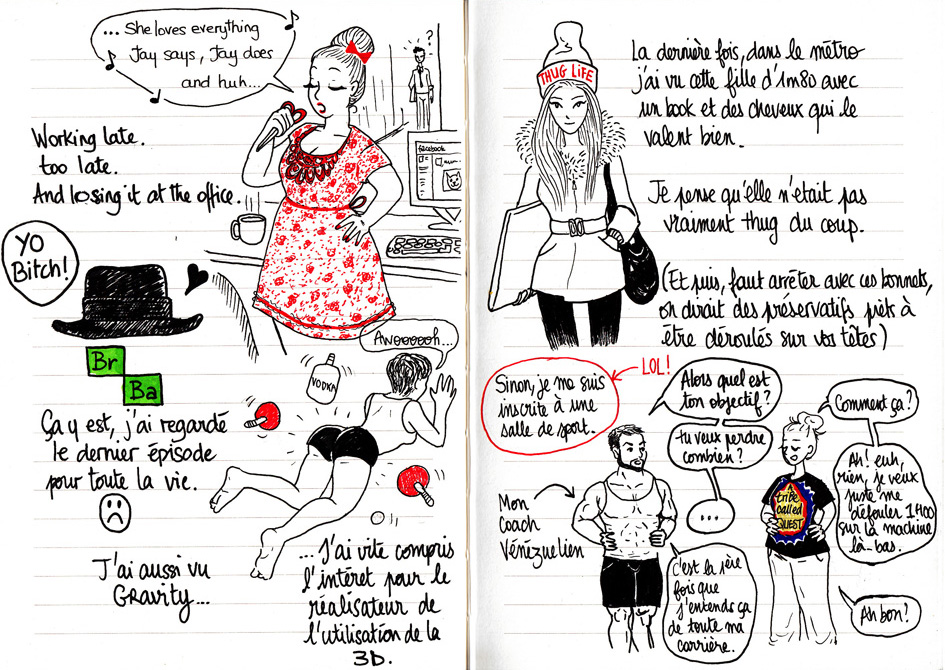 ... She loves everything
Jay says, Jay does
and huh...
?
Working late.
too late.
And losing it at the office.
facebook
YO
Bitch!
Br
Ba
Ça y est, j'ai regardé
le dernier épisode
pour toute la vie.
Awoooooh...
VODKA
J'ai aussi vu
GRAVITY...
... J'ai vite compris
l'intéret pour le
réalisateur de
l'utilisation de la
3D.
THUG LIFE
La dernière fois, dans le métro
j'ai vu cette fille d'1m80 avec
un book et des cheveux qui le
valent bien.
Je pense qu'elle n'était pas
vraiment thug du coup.
(Et puis, faut arrêter avec ces bonnets,
on dirait des préservatifs prêts à
être déroulés sur vos têtes)
Sinon, je me suis
inscrite à une
salle de sport.
LOL!
Alors quel est
ton objectif?
Tu veux perdre
combien?
...
Comment ça?
Ah! euh,
rien, je veux
juste me
défouler 1H00
sur la machine
là-bas.
Mon
Coach
Vénézuelien
a tribe
called
QUEST
C'est la 1ère
fois que
j'entends ça
de toute ma
carrière.
Ah bon?